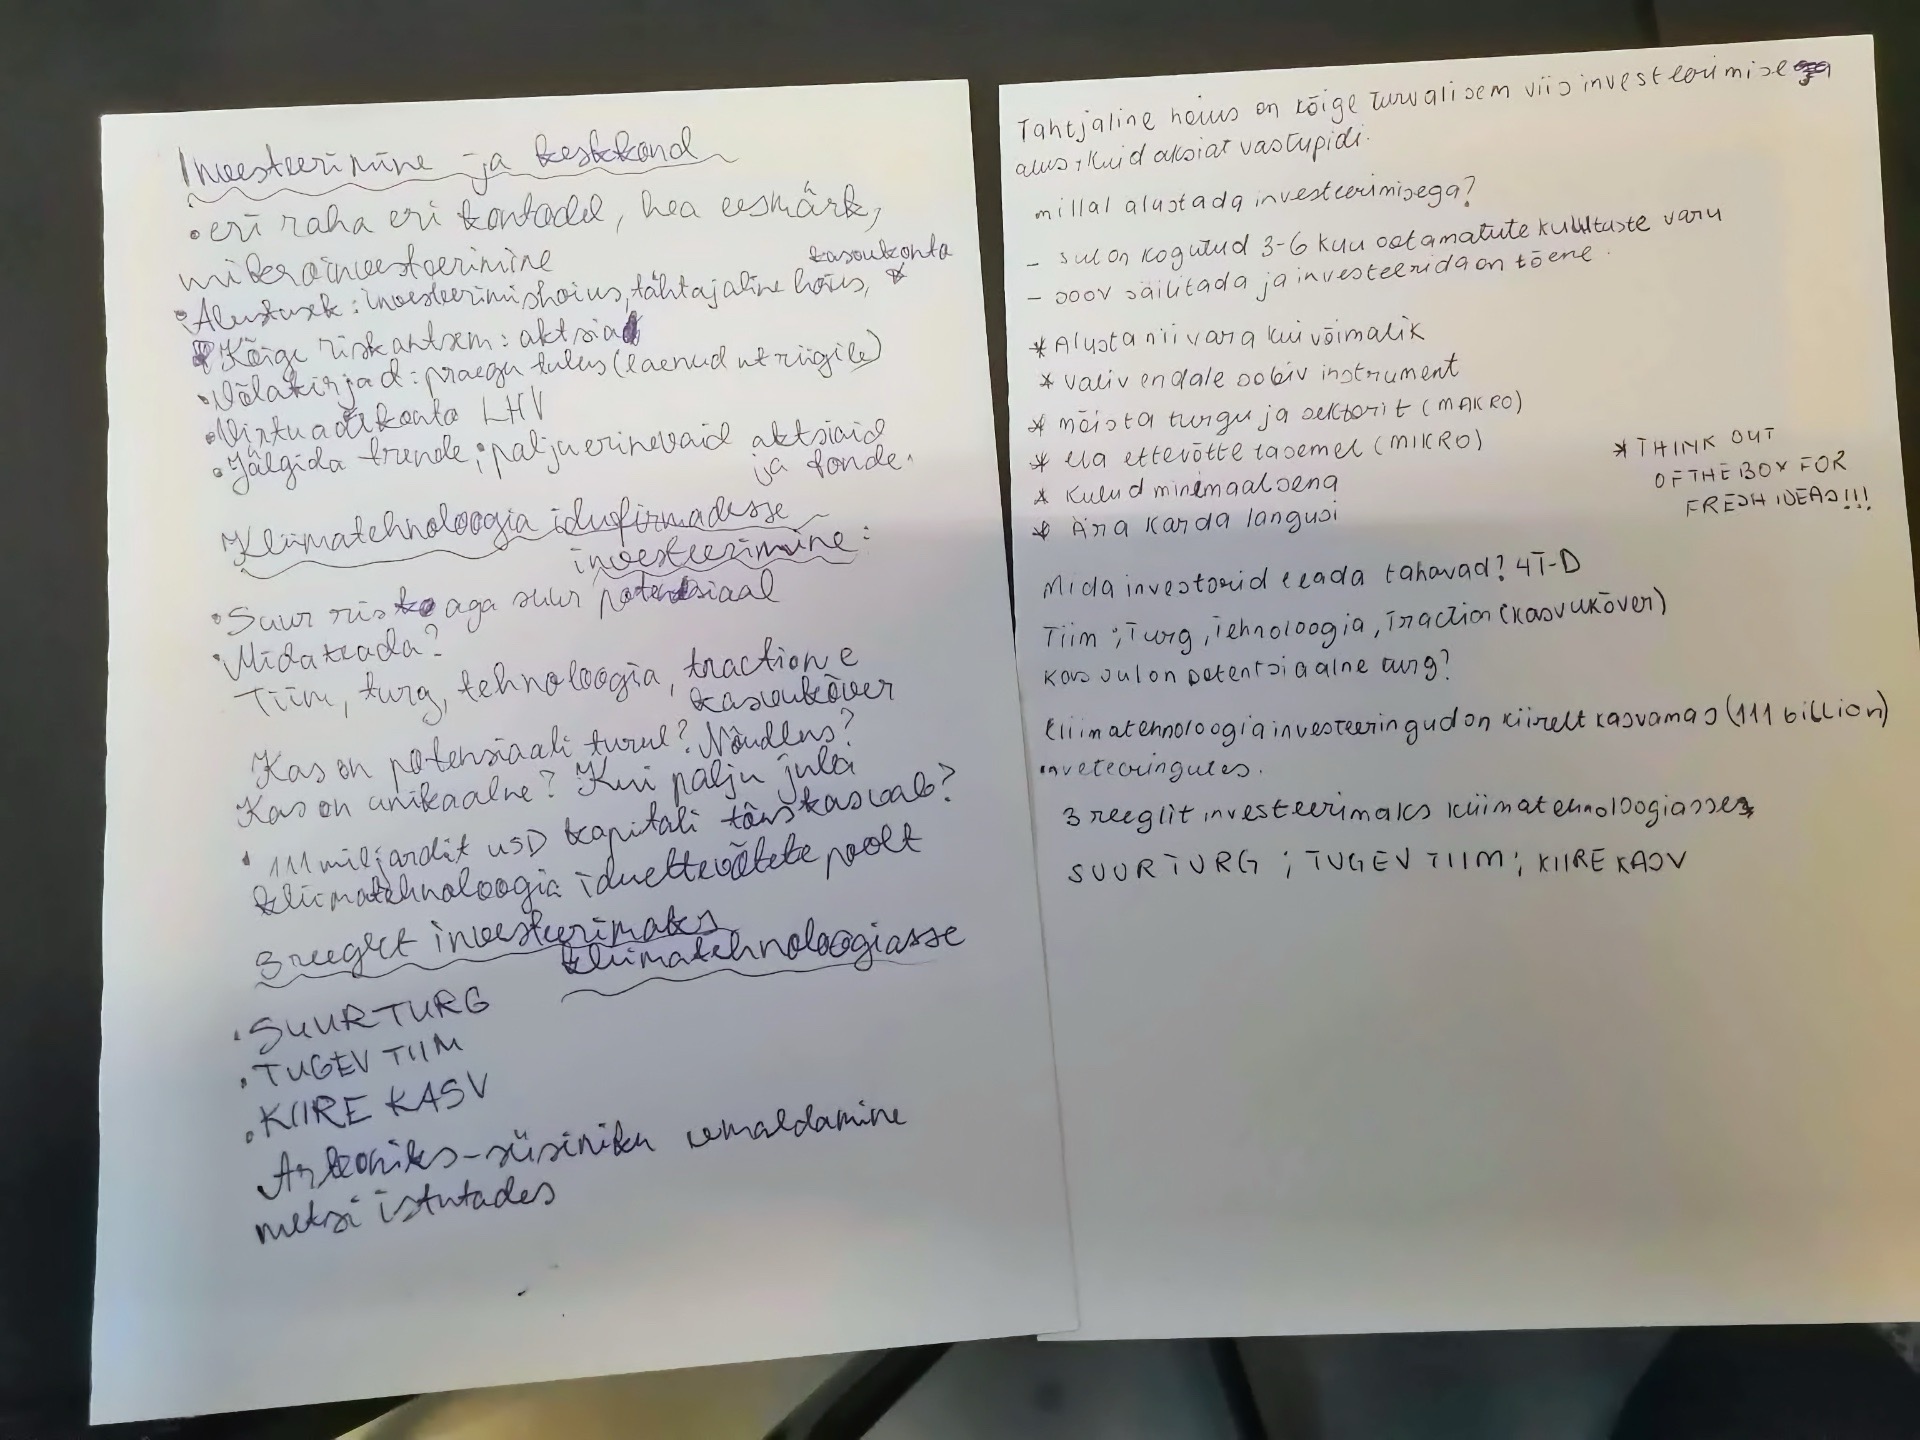 Investeerimine ja keskkond
• eri raha eri kontodel, hea eesmärk,
mikroinvesteerimine
kasvukonto
• Alustuseks: investeerimishoius, tähtajaline hoius, *
• Kõige riskantsem: aktsiad
• Võlakirjad: praegu tulus (laenud nt riigile)
• Virtuaalkonto LHV
• Jälgida trende; palju erinevaid aktsiaid
ja fonde.
Kliimatehnoloogia idufirmadesse
investeerimine:
• Suur risk aga suur potentsiaal
• Mida teada?
Tiim, turg, tehnoloogia, traction e
kasvukõver
Kas on potensiaali turul? Nõudlus?
Kas on unikaalne? Kui palju julei
• 111 miljardit USD kapitali tõus kasvab?
kliimatehnoloogia iduettevõtete poolt
3 reeglit investeerimaks
kliimatehnoloogiasse
• SUUR TURG
• TUGEV TIIM
• KIIRE KASV
Arkoniks - süsiniku eemaldamine
metsi istutades
Tahtjaline hoius on kõige turvalisem viis investeerimisega
alus, kuid aksiat vastupidi.
millal alustada investeerimisega?
- sul on kogutud 3-6 kuu ootamatute kulutuste varu
- soov säilitada ja investeerida on tõene.
* Alusta nii vara kui võimalik
* valiv endale sobiv instrument
* mõista turgu ja sektorit (MAKRO)
* ka ettevõtte tasemel (MIKRO)
* Kulud minimaalsena
* Ära karda langusi
* THINK OUT
OF THE BOX FOR
FRESH IDEAS!!!
Mida investorid teada tahavad? 4T-D
Tiim, Turg, Tehnoloogia, Traction (kasvukõver)
kas sul on potentsiaalne turg?
kliimatehnoloogia investeeringud on kiirelt kasvamas (111 billion)
inveteeringutes.
3 reeglit investeerimaks kliimatehnoloogiasse
SUUR TURG ; TUGEV TIIM ; KIIRE KASV